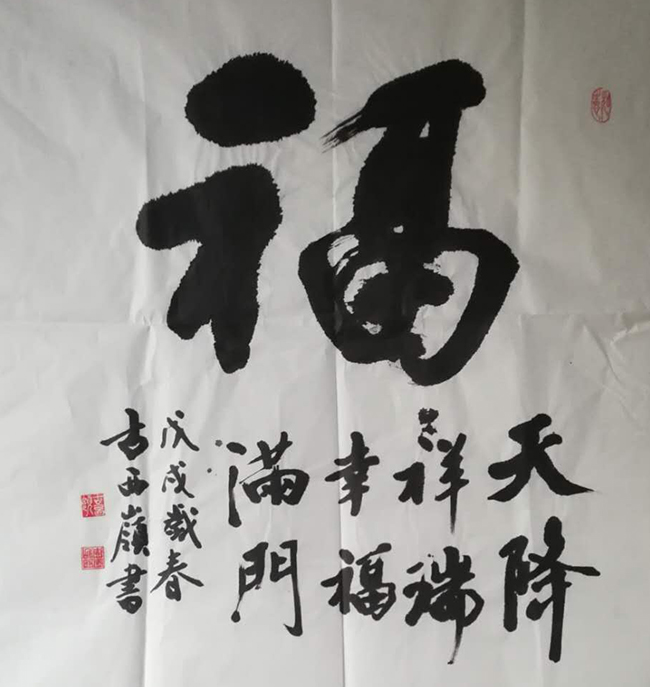 福
天降
祥瑞
幸福
滿門
戊戌歲春
古西嶺書